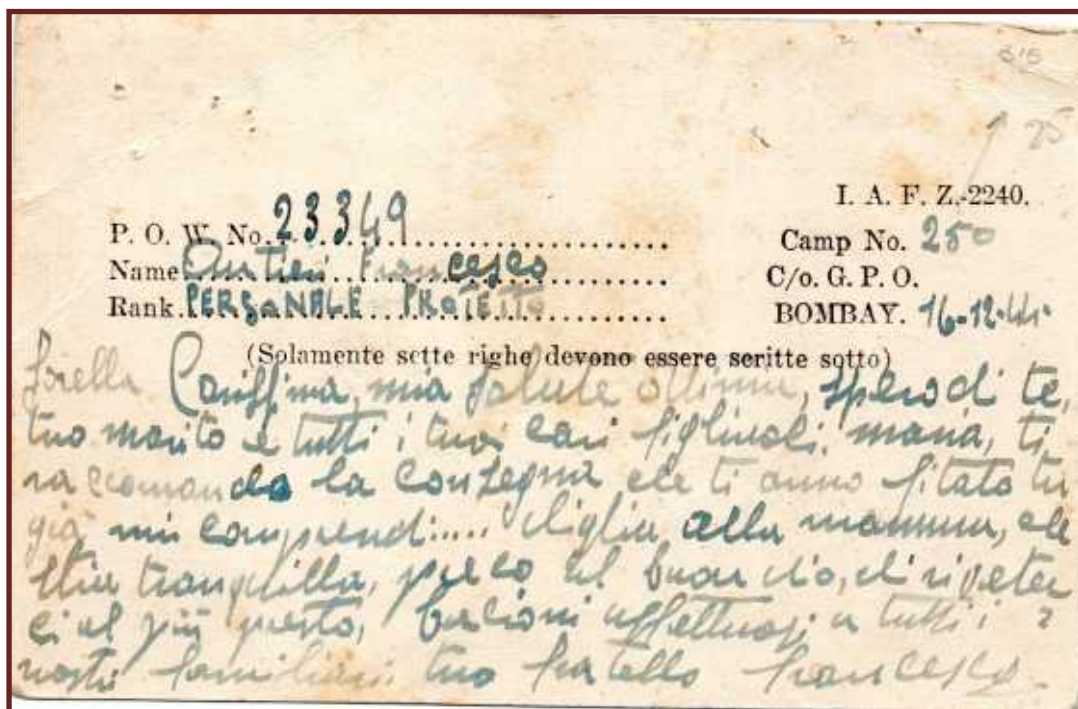 I. A. F. Z.-2240.
P. O. W. No. 23349
Camp No. 250
Name Francesco
C/o. G. P. O.
Rank PERSONALE PROTETTO
BOMBAY. 16-12-44.
(Solamente sette righe devono essere scritte sotto)
Sorella Carissima, mia salute ottima, spero di te,
tuo marito e tutti i tuoi cari figliuoli. maria, ti
raccomando la consegna che ti anno fitato tu
già mi comprendi..... diglia alla mamma, che
stia tranquilla, preco al buon dio, di riveter
ci al più presto, baccioni affettuosi a tutti i
nosti familiari tuo fratello francesco